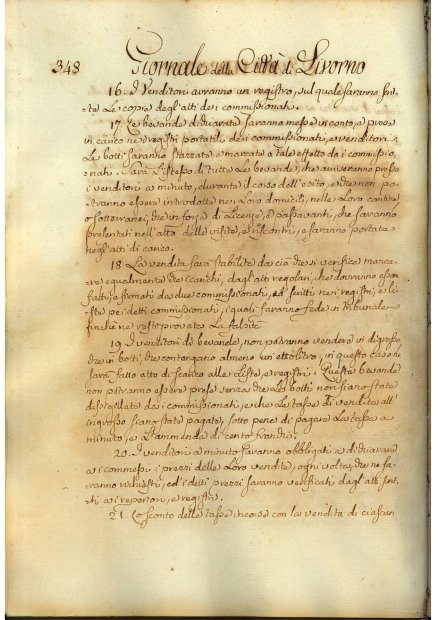 348 Giornale della Città di Livorno
16. I Venditori avranno un registro, sul quale saranno por-
tate Le copie degl'atti dei commissionati.
17. Le bevande dichiarate saranno messe in conto, e prese
in carico ne i registri portatili dei commissionati, e venditori.
Le botti saranno stazzate, e marcate a tale effetto da i commissio-
nati. Sarà L'istesso di tutte Le bevande, che arriveranno presso
i venditori a minuto, durante il corso dell'esito, e che non po-
tranno essere introdotte ne i Loro domicilj, nelle Loro cantine,
o sotterranei, che in forza di Licenze, e passavanti, che saranno
presentati nell'atto delle visite, e riscontri, e saranno portate
negl'atti di carico.
18. La vendita sarà stabilita da ciò, che si verifica manca-
re egualmente che i carichi, dagl'atti regolari, che dovranno esser
fatti, e firmati da due commissionati, ed scritti ne i registri, e li-
ste pei detti commissionati, i quali faranno fede in tribunale
finchè ne resti provata La falsità.
19. I venditori di bevande, non potranno vendere in digrosso
che in botti, che contengano almeno un ettolitro, in questo caso ne
sarà fatto atto di scarico alle Liste, e registri. Queste bevande
non potranno essere prese senza che Le botti non siano state
disigillate da i commissionati, e che Le tasse di vendita all'
ingrosso siano state pagate, sotto pena di pagare La tassa a
minuto, e L'ammenda di cento franchi.
20. I venditori a minuto saranno obbligati a dichiarare
a i commessi i prezzi delle Loro vendite, ogni volta, che ne sa-
ranno richiesti, ed i detti prezzi saranno verificati dagl'atti
a i repertori, e registri.
21. Lo sconto delle tasse incorse con la vendita di ciascun